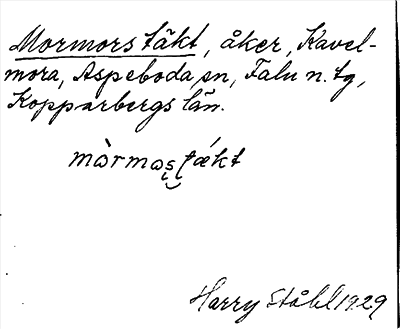 Mormors täkt, åker, Kavel-
mora, Aspeboda sn, Falu n. tg,
Kopparbergs län.
mòrmaș tǽkt
Harry Ståhl 1929